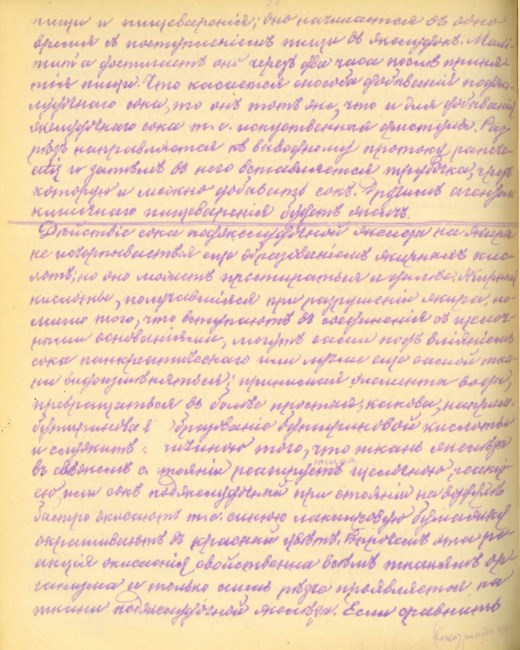 пищи и пищеваренія; оно начинается въ одно
время съ поступленіемъ пищи въ желудокъ. Maxi-
достигаетъ оно черезъ два часа послѣ приня-
тія пищи. Что касается способа добыванія подже-
лудочнаго сока, то онъ тотъ же, что и для добыванія
желудочнаго сока т. е. искуственная фистула. Раз-
рѣзъ направляется къ выводному протоку pancre-
и затѣмъ въ него вставляется трубочка, чрезъ
которую и можно добывать сокъ. Другимъ агентомъ
кишечнаго пищеваренія будетъ желчь.
Дѣйствіе сока поджелудочной железы на жиры
не исчерпывается еще образованіемъ жирныхъ кис-
лотъ; но оно можетъ простираться и далѣе. Жирныя
кислоты, получившіяся при разрушеніи жира, по-
мимо того, что вступаютъ въ соединенія съ щелоч-
ными основаніями, могутъ сами подъ вліяніемъ
сока панкреатическаго или лучше еще самой тка-
ни видоизмѣняться; принимая элементы воды,
превращаться въ болѣе простыя, какова, напримѣръ
бутириновая. Образованіе бутириновой кислоты
и служитъ причиною того, что ткань железы
въ свѣжемъ состояніи реагируетъ щелочною реакці-
ею или сокъ поджелудочный при стояніи на воздухѣ
быстро окисаютъ т. е. синюю лакмусовую бумажку
окрашиваютъ въ красный цвѣтъ. Впрочемъ эта ре-
акція окисанія свойственна всѣмъ тканямъ ор-
ганизма и только лишь рѣзче проявляется на
ткани поджелудочной железы. Если сравнить